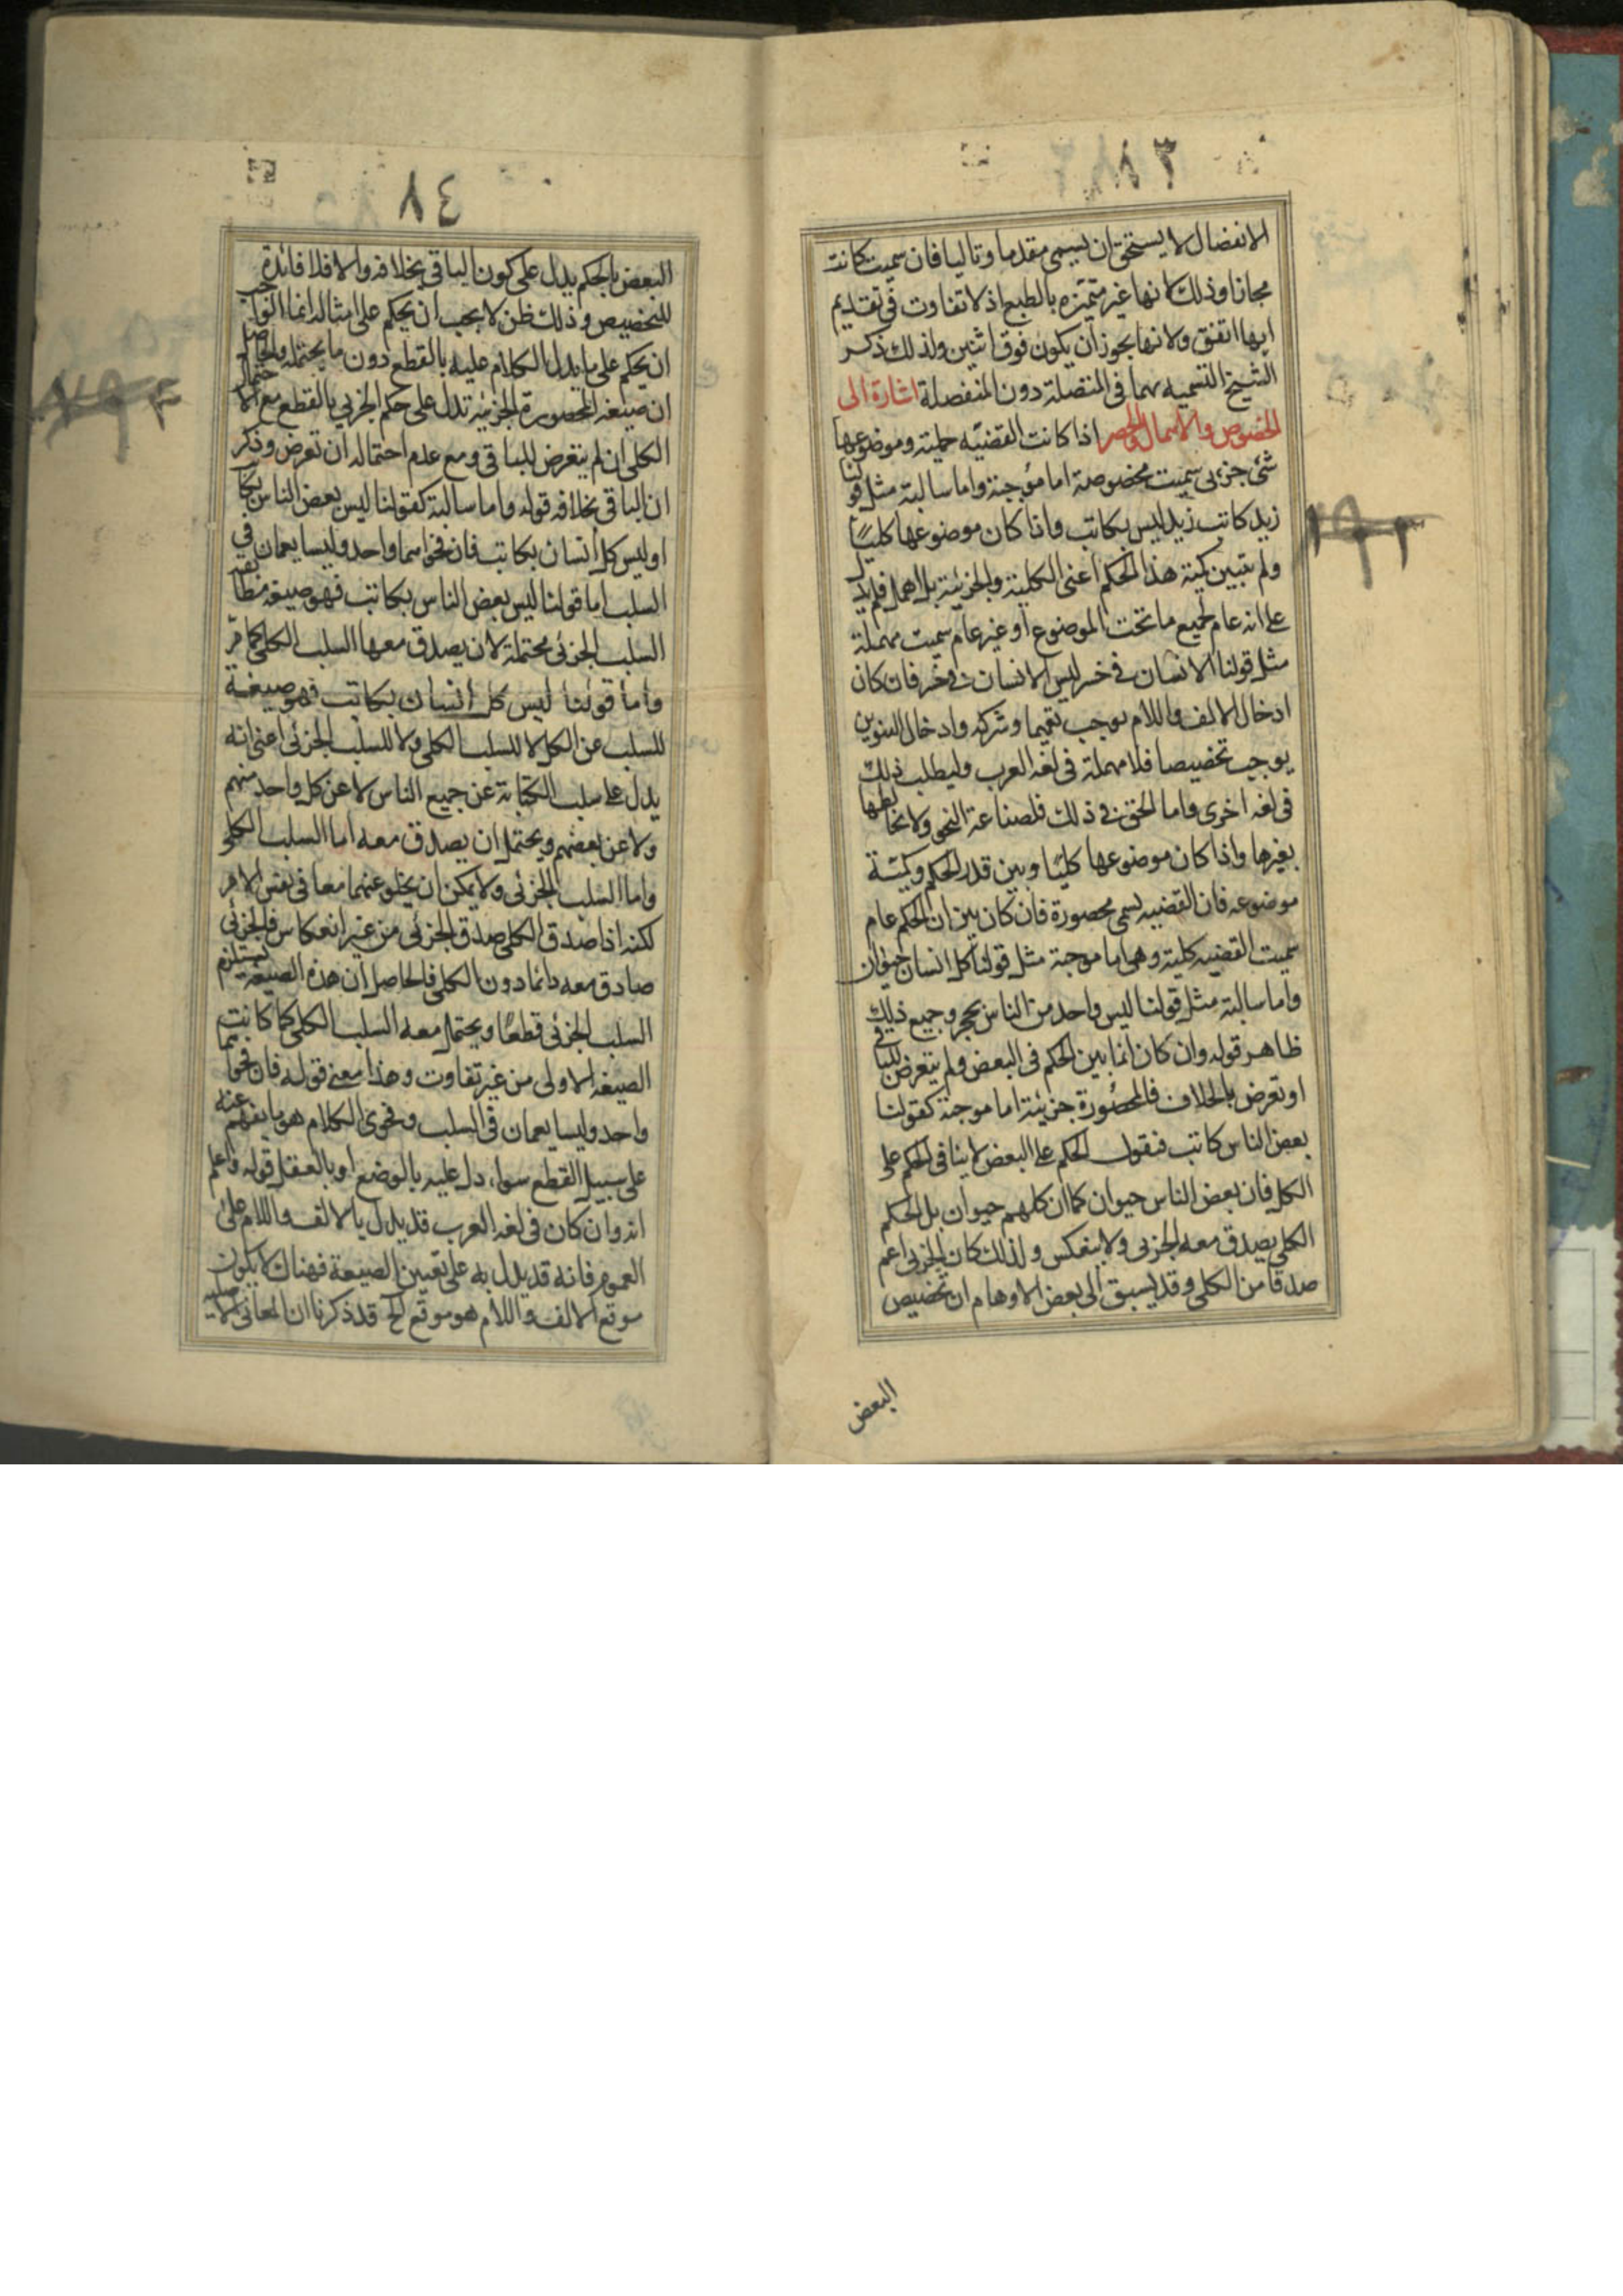 ٨٣
الانفصال لا يستحق ان يسمى مقدما وتاليا فان سميت كانت
مجازا وذلك لانها غير متميزه بالطبع اذ لا تفاوت فى تقديم
ايها اتفق ولانها يجوز ان يكون فوق اثنين ولذلك ذكر
الشيخ التسميه بهما فى المتصلة دون المنفصلة اشارة الى
الخصوص والاهمال والحصر اذا كانت القضيّه حملية وموضوعها
شئ جزئى سميت مخصوصة اما موجبة واما سالبة مثل قولنا
زيد كاتب زيد ليس بكاتب واذا كان موضوعها كليًا
ولم تبين كمية هذا الحكم اعنى الكلية والجزئية بل اهمل فلم يدل
على انه عام لجميع ما تحت الموضوع او غير عام سميت مهملة
مثل قولنا الانسان فى خسر ليس الانسان فى خسر فان كان
ادخال الالف واللام يوجب تعميما وشركه وادخال التنوين
يوجب تخصيصا فلا مهملة فى لغه العرب وليطلب ذلك
فى لغه اخرى واما الحق فى ذلك فلصناعة النحو ولا نخالطها
بغيرها واذا كان موضوعها كليًا وبين قدر الحكم وكميّة
موضوعه فان القضيه تسمى محصورة فان كان بين ان الحكم عام
سميت القضيه كلية وهى اما موجبة مثل قولنا كل انسان حيوان
واما سالبة مثل قولنا ليس واحد من الناس بحجر وجميع ذلك
ظاهر قوله وان كان انما بين الحكم فى البعض ولم يتعرض للباقى
او تعرض بالخلاف فالمحصورة جزئية اما موجبة كقولنا
بعض الناس كاتب فنقول الحكم على البعض لا ينافى الحكم على
الكل فان بعض الناس حيوان كما ان كلهم حيوان بل الحكم
الكلى يصدق معه الجزئى ولا ينعكس ولذلك كان الجزئى اعم
صدقا من الكلى وقد يسبق الى بعض الاوهام ان تخصيص
البعض
٨٤
البعض بالحكم يدل على كون الباقى بخلافه والا فلا فائدة
للتخصيص وذلك ظن لا يجب ان يحكم على امثاله انما الواجب
ان يحكم على ما يدل الكلام عليه بالقطع دون ما يحتمله والحاصل
ان صيغه المحصورة الجزئيه تدل على حكم الجزئى بالقطع مع احتمال
الكلى ان لم يتعرض للباقى ومع عدم احتماله ان تعرض وذكر
ان الباقى بخلافه قوله واما سالبة كقولنا ليس بعض الناس بكاتب
او ليس كل انسان بكاتب فان فحواهما واحد وليسا يعمان فى
السلب اما قولنا ليس بعض الناس بكاتب فهو صيغه مطابقه
السلب الجزئى محتملة لان يصدق معها السلب الكلى كما مرّ
واما قولنا ليس كل انسان بكاتب فهو صيغة
للسلب عن الكل لا للسلب الكلى ولا للسلب الجزئى اعنى انه
يدل على سلب الكتابة عن جميع الناس لا عن كل واحد منهم
ولا عن بعضهم ويحتمل ان يصدق معه اما السلب الكلى
واما السلب الجزئى ولا يمكن ان يخلو عنهما معا فى نفس الامر
لكنه اذا صدق الكلى صدق الجزئى من غير انعكاس فالجزئى
صادق معه دائما دون الكلى فالحاصل ان هذه الصيغة يستلزم
السلب الجزئى قطعًا ويحتمل معه السلب الكلى كما كانت
الصيغه الاولى من غير تفاوت وهذا معنى قوله فان فحواهما
واحد وليسا يعمان فى السلب وفحوى الكلام هو ما يفهم عنه
على سبيل القطع سواء دل عليه بالوضع او بالعقل قوله واعلم
انه وان كان فى لغه العرب قد يدل بالالف واللام على
العموم فانه قد يدل به على تعيين الصيغة فهناك لا يكون
موقع الالف واللام هو موقع الخ قد ذكرنا ان المعانى